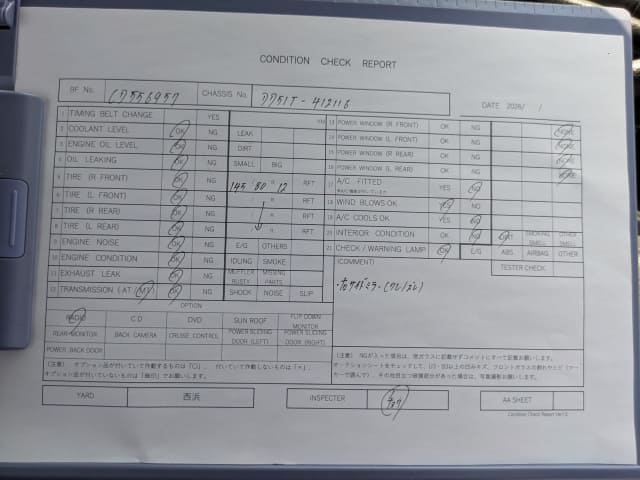 CONDITION CHECK REPORT
BF No. CD556957 CHASSIS No. DD51T-412116 DATE 2026/ /
1 TIMING BELT CHANGE YES KM
2 COOLANT LEVEL OK NG LEAK
3 ENGINE OIL LEVEL OK NG DIRT
4 OIL LEAKING OK NG SMALL BIG
5 TIRE (R FRONT) OK NG 145 / 80 R 12 RFT
6 TIRE (L FRONT) OK NG / R RFT
7 TIRE (R REAR) OK NG / R RFT
8 TIRE (L REAR) OK NG / R RFT
9 ENGINE NOISE OK NG E/G OTHERS
10 ENGINE CONDITION OK NG IDLING SMOKE
11 EXHAUST LEAK OK NG MUFFLER RUSTY MISSING PARTS
12 TRANSMISSION (AT/MT) OK NG SHOCK NOISE SLIP
OPTION
RADIO CD DVD SUN ROOF FLIP DOWN MONITOR
REAR MONITOR BACK CAMERA CRUISE CONTROL POWER SLIDING DOOR (LEFT) POWER SLIDING DOOR (RIGHT)
POWER BACK DOOR
(注意) オプション品が付いていて作動するものは「○」、付いていて作動しないものは「×」
オプション品が付いていないものは「無印」でお願いします。
13 POWER WINDOW (R FRONT) OK NG NONE
14 POWER WINDOW (L FRONT) OK NG NONE
15 POWER WINDOW (R REAR) OK NG NONE
16 POWER WINDOW (L REAR) OK NG NONE
17 A/C FITTED YES NO
18 WIND BLOWS OK YES NO
19 A/C COOLS OK YES NO
20 INTERIOR CONDITION OK NG DIRT SMOKING SMELL OTHER SMELL
21 CHECK / WARNING LAMP OK E/G ABS AIRBAG OTHER
(COMMENT) TESTER CHECK
(注意) NGが入った場合は、窓ガラスに記載せずコメントにすべて記載お願いします。
YARD 西浜 INSPECTER AA SHEET
Condition Check Report Ver1.0